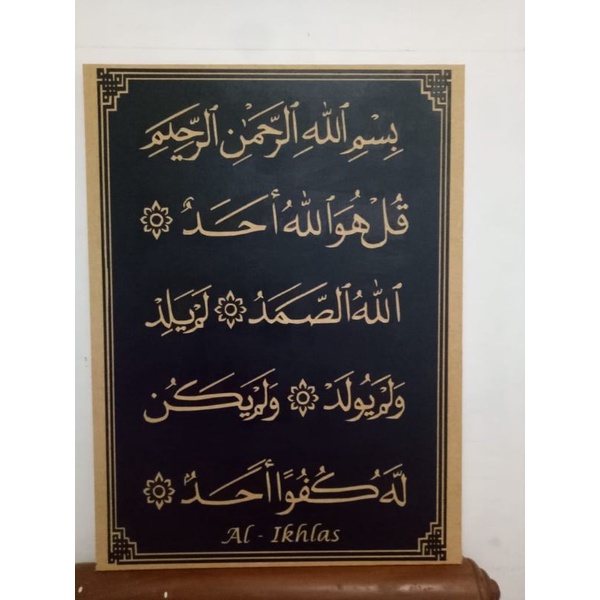 بِسْمِ ٱللَّهِ ٱلرَّحْمَٰنِ ٱلرَّحِيمِ
قُلْ هُوَ ٱللَّهُ أَحَدٌ ۞
ٱللَّهُ ٱلصَّمَدُ ۞ لَمْ يَلِدْ
وَلَمْ يُولَدْ ۞ وَلَمْ يَكُن
لَّهُ كُفُوًا أَحَدٌۢ ۞
Al - Ikhlas